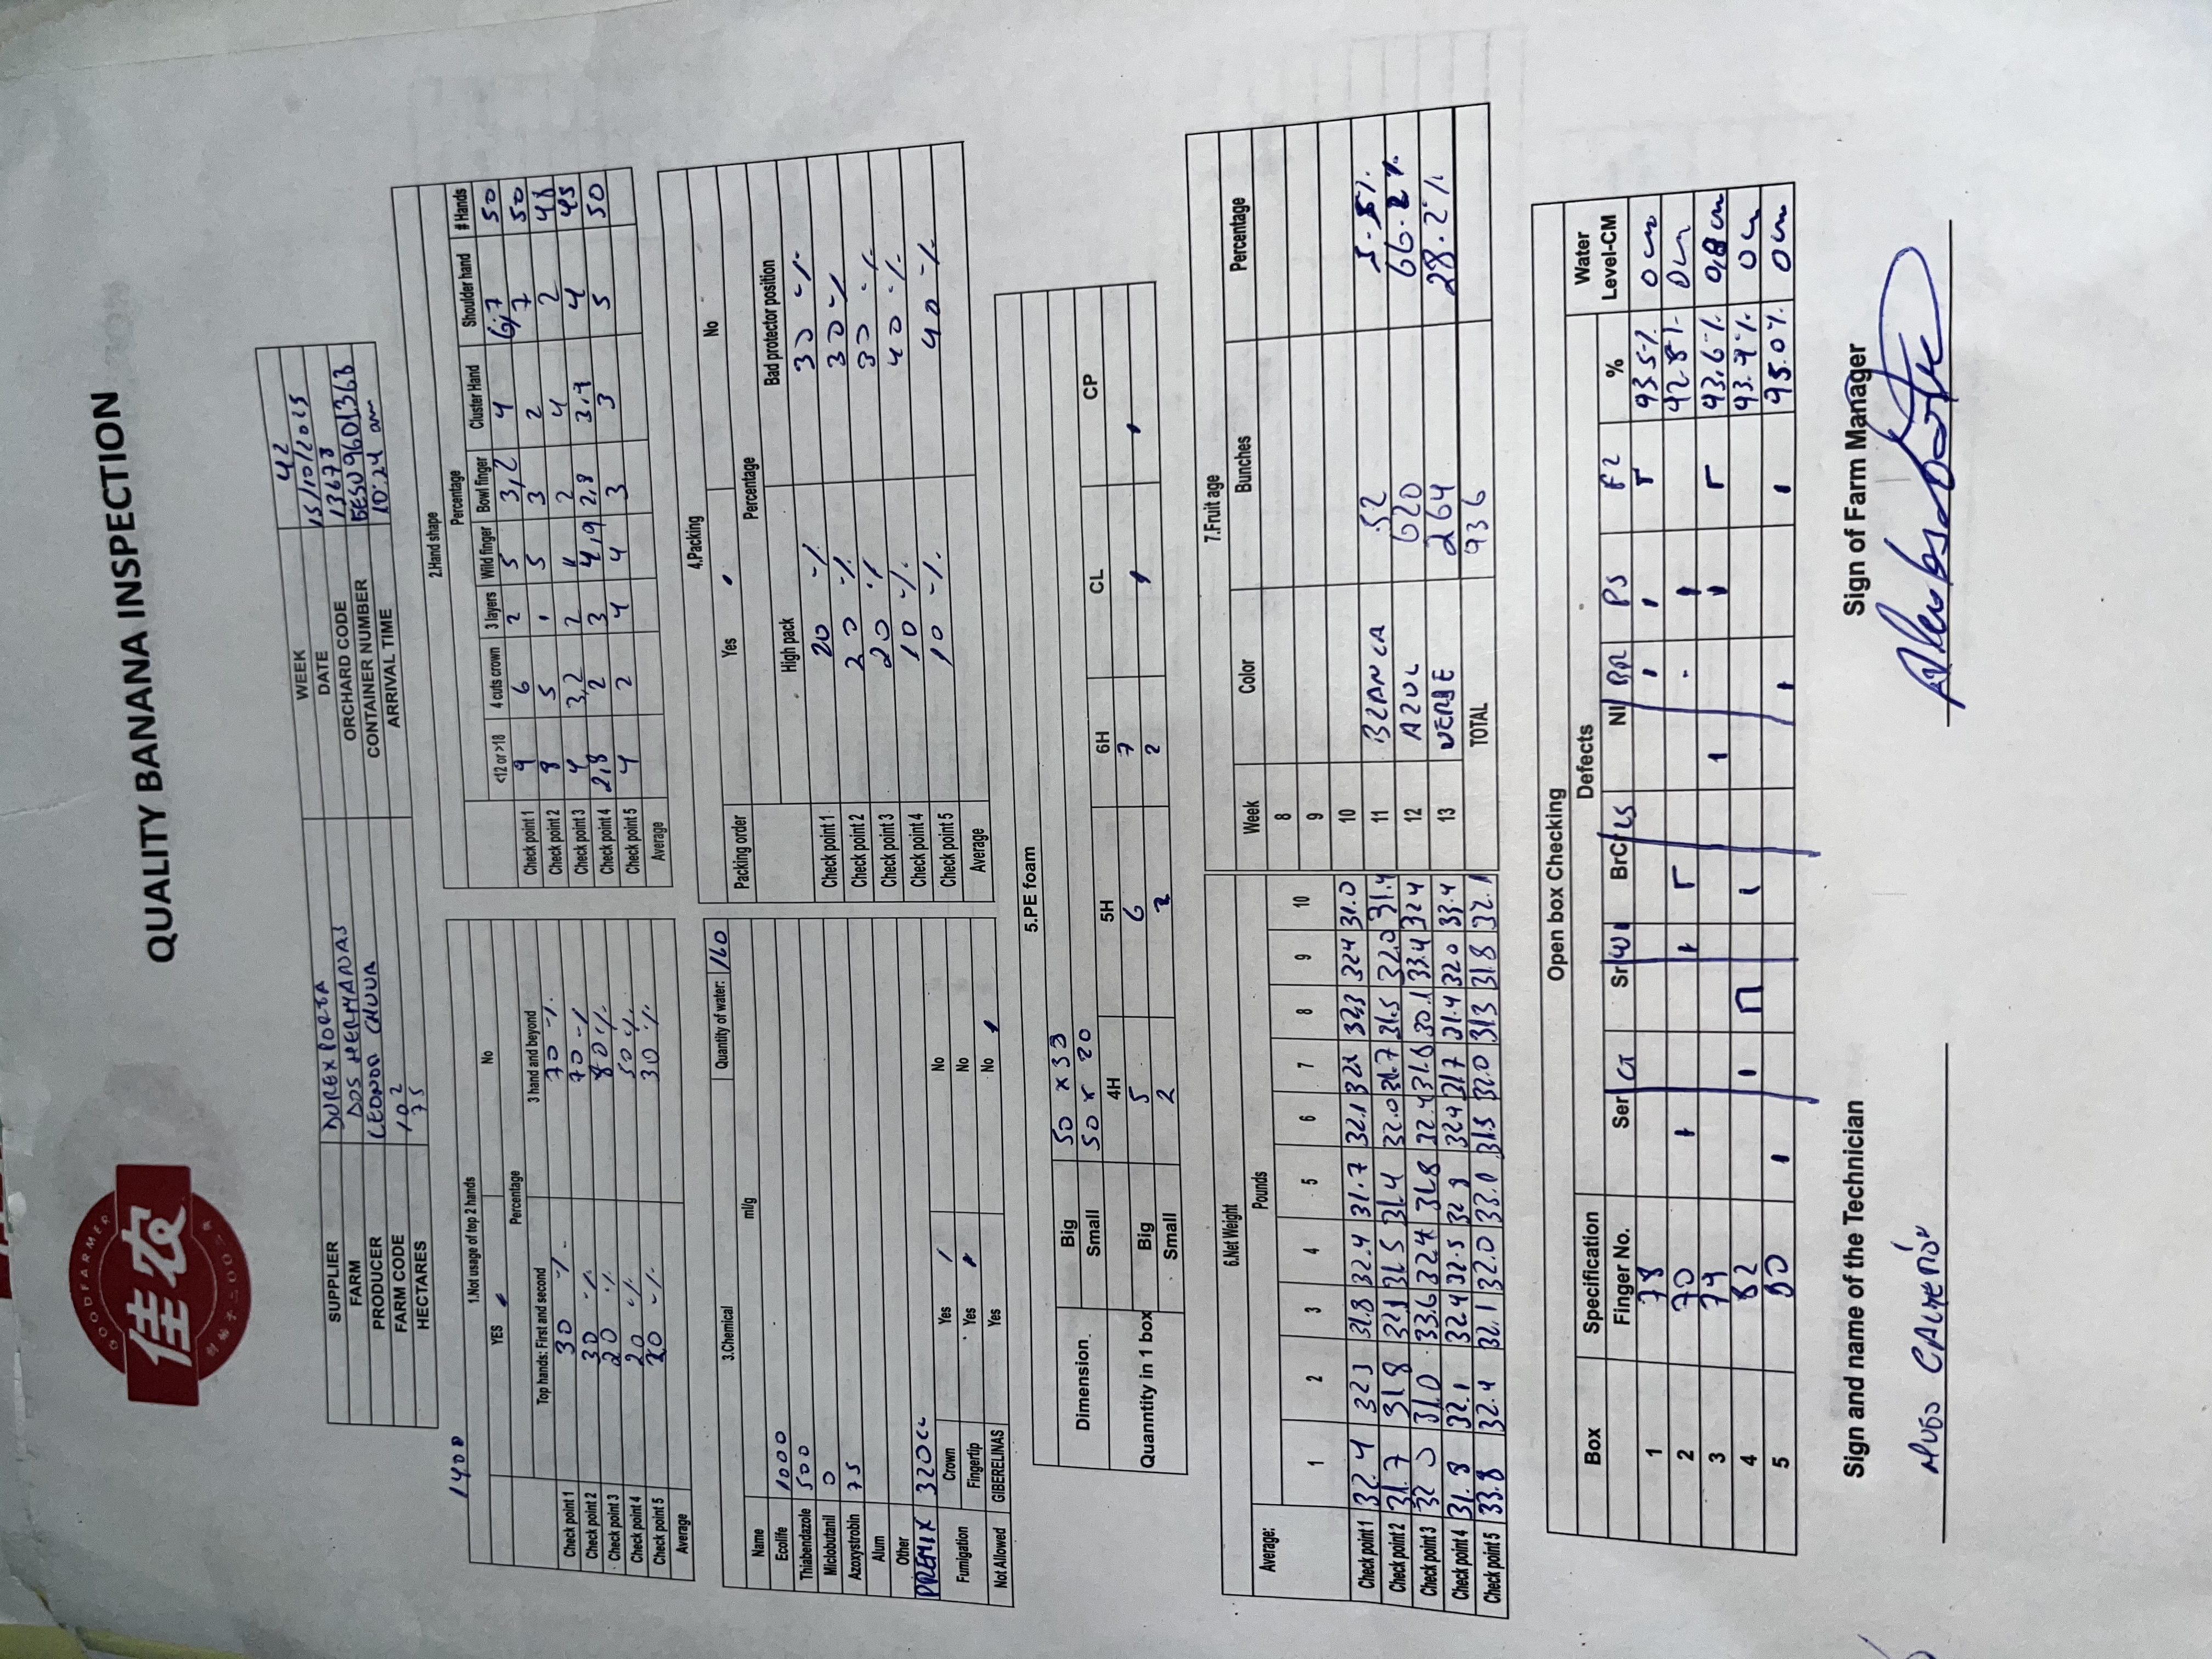 GOODFARMER
佳农
创始于二〇〇二年
QUALITY BANANA INSPECTION
SUPPLIER DUREXPORTA WEEK 42
FARM DOS HERMANAS DATE 15/10/2025
PRODUCER LEONOR CHUVA ORCHARD CODE 13678
FARM CODE 102 CONTAINER NUMBER EESU9601363
HECTARES 75 ARRIVAL TIME 10:24 am
1400
1.Not usage of top 2 hands
YES No
Percentage
Top hands: First and second 3 hand and beyond
Check point 1 30 % 70 %
Check point 2 30 % 70 %
Check point 3 20 % 80 %
Check point 4 20 % 50 %
Check point 5 20 % 30 %
Average
2.Hand shape
Percentage
<12 or >18 4 cuts crown 3 layers Wild finger Bowl finger Cluster Hand Shoulder hand # Hands
Check point 1 9 6 2 5 3,2 4 6,7 50
Check point 2 8 5 1 5 3 2 7 50
Check point 3 4 3,2 2 4 2 4 2 48
Check point 4 2,8 2 3 4,9 2,8 3,9 4 45
Check point 5 4 2 4 4 3 3 5 50
Average
3.Chemical Quantity of water: 160
Name ml/g
Ecolife 1000
Thiabendazole 500
Miclobutanil 0
Azoxystrobin 75
Alum
Other
PREMIX 320cc
Fumigation Crown Yes / No
Fingertip Yes No
Not Allowed GIBERELINAS Yes No
4.Packing
Packing order Yes No
Percentage
High pack Bad protector position
Check point 1 20 % 30 %
Check point 2 20 % 30 %
Check point 3 20 % 30 %
Check point 4 10 % 40 %
Check point 5 10 % 40 %
Average
5.PE foam
Dimension Big 50 x 33
Small 50 x 20
4H 5H 6H CL CP
Quanntity in 1 box Big 5 6 7
Small 2 2 2
6.Net Weight
Average: Pounds
1 2 3 4 5 6 7 8 9 10
Check point 1 32.4 323 31.8 32.4 31.7 32.1 323 324 31.0
Check point 2 31.7 31.8 32.1 31.5 31.4 32.0 31.7 31.5 32.0 31.4
Check point 3 32 0 31.0 33.6 324 31.8 32.4 31.6 30.1 33.4 324
Check point 4 31.8 32.1 324 32.5 32 8 324 317 31.4 320 33.4
Check point 5 33.8 32.4 32.1 32.0 33.0 31.5 32.0 313 31.8 32.1
7.Fruit age
Week Color Bunches Percentage
8
9
10
11 BLANCA 52 5.5%
12 AZUL 620 66.2%
13 VERDE 264 28.2%
TOTAL 936
Open box Checking
Box Specification Defects Water
Finger No. Ser CT Sr WI BrC LS NI BR PS F2 % Level-CM
1 78 93.5% 0 cm
2 70 92.8% 0 cm
3 79 93.6% 0,8 cm
4 82 93.9% 0 cm
5 80 95.0% 0 cm
Sign and name of the Technician Sign of Farm Manager
HUGO CALDERÓN